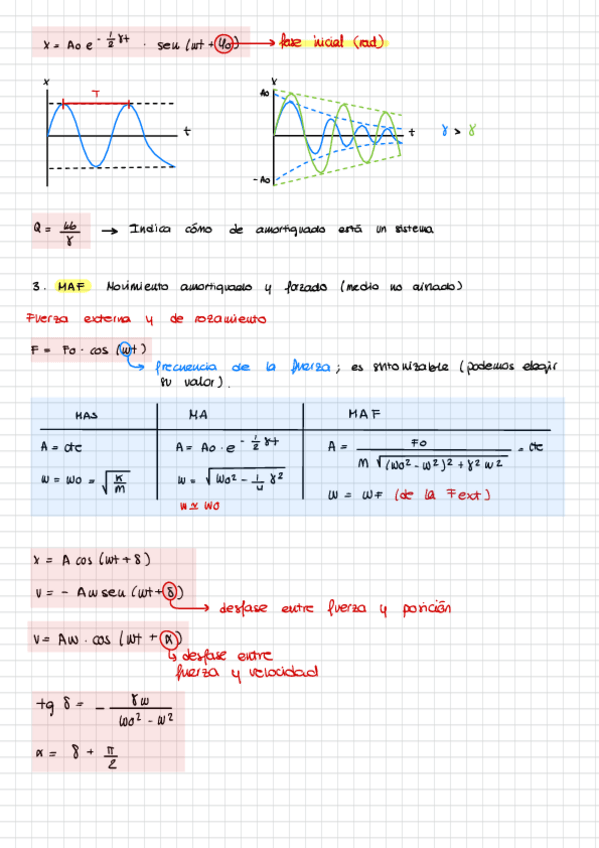 x = A₀ e^(-½γt) · sen (ωt + φ₀) → fase inicial (rad)
x
T
t
x
A₀
-A₀
t
γ > γ
Q = ω₀/γ → Indica cómo de amortiguado está un sistema
3. MAF Movimiento amortiguado y forzado (medio no aislado)
Fuerza externa y de rozamiento
F = F₀ · cos (ωt)
frecuencia de la fuerza; es sintonizable (podemos elegir
su valor).
MAS MA MAF
A = cte A = A₀ · e^(-½γt) A = F₀ / (m √((ω₀² - ω²)² + γ² ω²)) = cte
ω = ω₀ = √(K/m) ω = √(ω₀² - ¼ γ²) ω = ωF (de la Fext)
ω ≃ ω₀
x = A cos (ωt + δ)
v = - Aω sen (ωt + δ)
desfase entre fuerza y posición
v = Aω · cos (ωt + α)
desfase entre
fuerza y velocidad
tg δ = - γω / (ω₀² - ω²)
α = δ + π/2